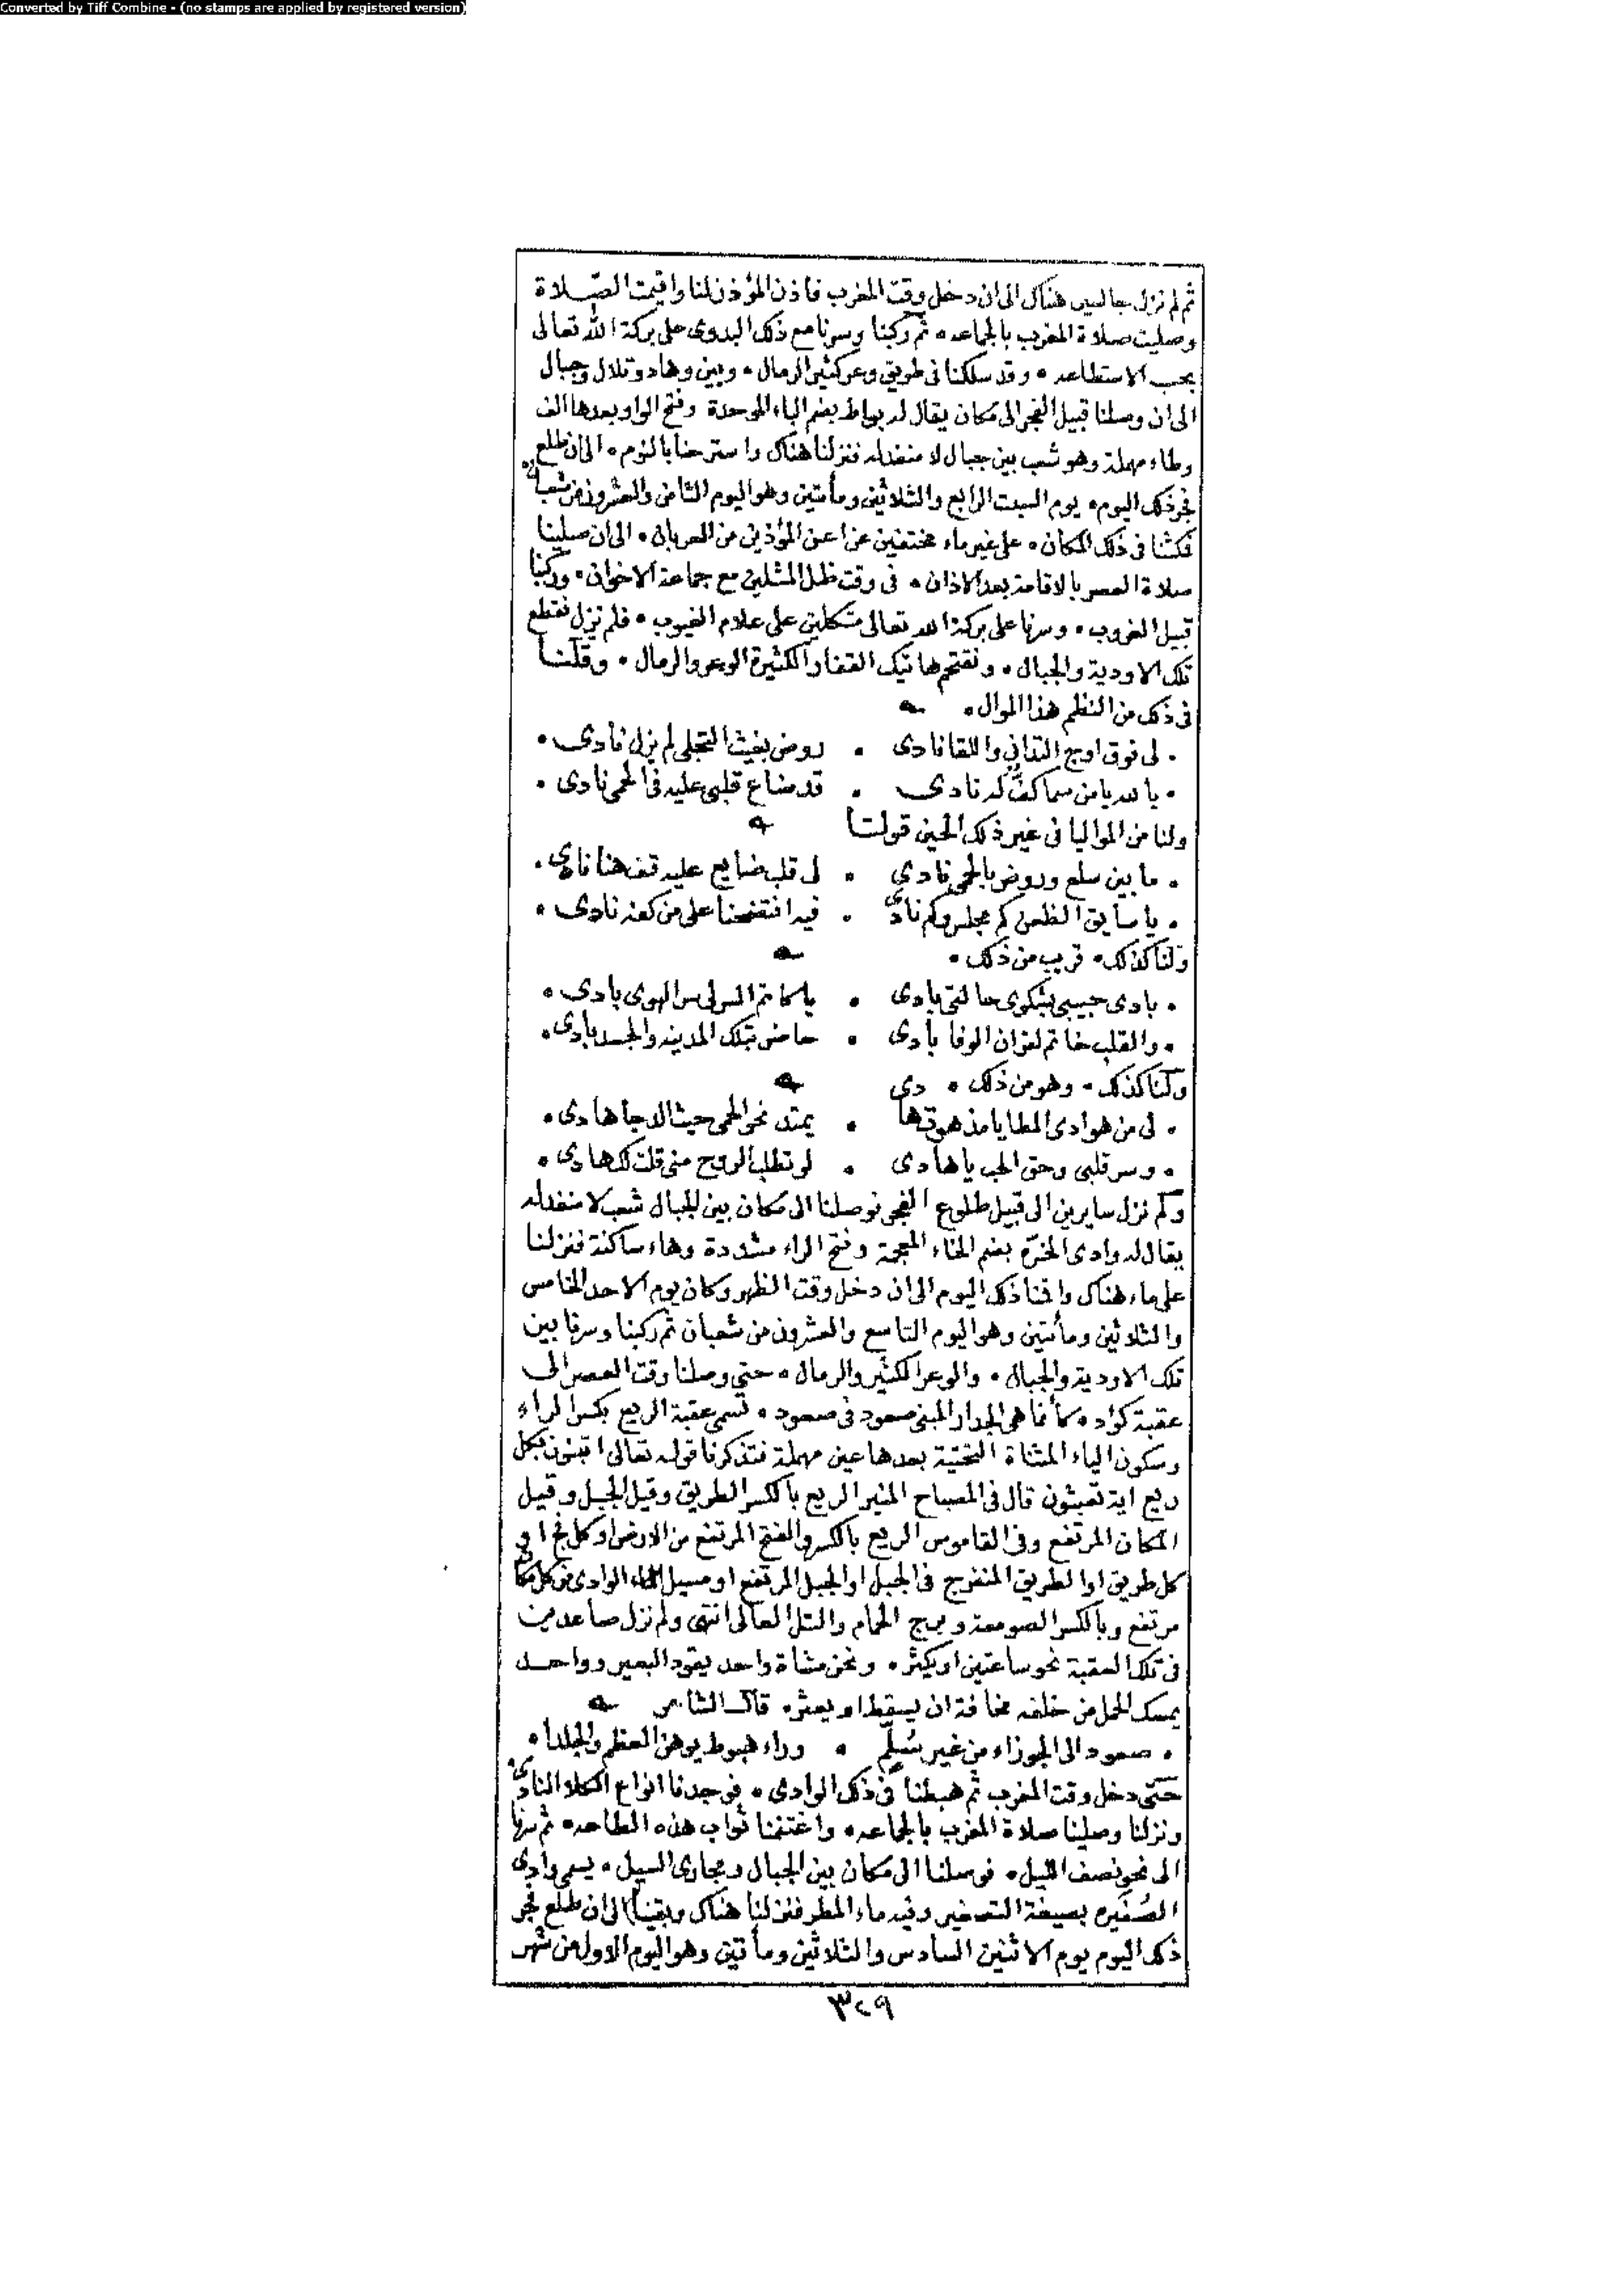 Converted by Tiff Combine - (no stamps are applied by registered version)
ثم لم نزل جالسين هناك الى ان دخل وقت المغرب فاذن المؤذن لنا واقيمت الصّلاة
وصليت صلاة المغرب بالجماعه • ثم ركبنا وسرنا مع ذلك البدوى على بركة الله تعالى
بحسب الاستطاعه • وقد سلكنا فى طريق وعر كثير الرمال • وبين وهاد وتلال وجبال
الى ان وصلنا قبيل الفجر الى مكان يقال له بواط بضم الباء الموحدة وفتح الواو بعدها الف
وطاء مهملة وهو شعب بين جبال لا منفذ له فنزلنا هناك واسترحنا بالنوم • الى ان طلع
فجر ذلك اليوم • يوم السبت الرابع والثلاثين ومأتين وهو اليوم الثامن والعشرون من شعبان
فمكثنا فى ذلك المكان • على غير ماء مختفين عن اعين المؤذين من العربان • الى ان صلينا
صلاة العصر بالاقامة بعد الاذان • فى وقت ظل المثلين مع جماعة الاخوان • وركبنا
قبيل الغروب • وسرنا على بركة الله تعالى متكلين على علام الغيوب • فلم نزل نقطع
تلك الاودية والجبال • ونقتحم هاتيك القفار الكثيرة الوعر والرمال • وقلنا
فى ذلك من النظم هذا الموال •
• لى فوق اوج التدانى واللقا نادى • روض بغيث التجلى لم يزل نادى •
• بالله يا من سما كفّ له نادى • قد ضاع قلبى عليه فى الحمى نادى •
ولنا من المواليا فى غير ذلك الحين قولنا
• ما بين سلع وروض بالحمى نادي • لى قلب ضايع عليه قف هنا نادي •
• يا سايق الظعن كم مجلس وكم نادي • فيه افتضحنا على من كفه نادى •
ولنا كذلك • قريب من ذلك •
• بادى حبيبى بشكوى حالتى بادى • يا كاتم السر لى سر الهوى بادى •
• والقلب خاتم لغزان الوفا بادى • حاضر بتلك المدينه والجسد بادى •
ولنا كذلك • وهو من ذلك •
• لى من هوادى المطايا مذ هويتها دى • يمتد نحو الحمى حيث الدجا هادى •
• وسر قلبى وحق الحب يا هادى • لو تطلب الروح منى قلت لك هادى •
ولم نزل سايرين الى قبيل طلوع الفجر فوصلنا الى مكان بين الجبال شعب لا منفذ له
يقال له وادى الخرّه بضم الخاء المعجمة وفتح الراء مشددة وهاء ساكنة فنزلنا
على ماء هناك واقمنا ذلك اليوم الى ان دخل وقت الظهر وكان يوم الاحد الخامس
والثلاثين ومأتين وهو اليوم التاسع والعشرون من شعبان ثم ركبنا وسرنا بين
تلك الاودية والجبال • والوعر الكثير والرمال • حتى وصلنا وقت العصر الى
عقبة كؤد • كأنما هى الجدار المبنى صعود فى صعود • تسمى عقبة الريع بكسر الراء
وسكون الياء المثناة التحتيّة بعدها عين مهملة فتذكرنا قوله تعالى اتبنون بكل
ريع اية تعبثون قال فى المصباح المنير الريع بالكسر الطريق وقيل الجبل وقيل
المكان المرتفع وفى القاموس الريع بالكسر والفتح المرتفع من الارض او كل فج او
كل طريق او الطريق المنفرج فى الجبل او الجبل المرتفع او مسيل الماء الوادى من كل مكان
مرتفع وبالكسر الصومعة وبرج الحمام والتل العالى انتهى ولم نزل صاعدين
فى تلك العقبة نحو ساعتين او يكثر • ونحن مشاة واحد يقود البعير وواحد
يمسك الحمل من خلفه مخافة ان يسقط او يعثر • قال الشاعر
• صعود الى الجوزاء من غير سُلّم • وراء هبوط يوهن العظم والجلدا •
حتى دخل وقت المغرب ثم هبطنا فى ذلك الوادى • فوجدنا انواع الكلاء النادى
ونزلنا وصلينا صلاة المغرب بالجماعه • واغتنمنا ثواب هذه الطاعه • ثم سرنا
الى نحو نصف الليل • فوصلنا الى مكان بين الجبال ومجارى السيل • يسمى وادى
الصُفَيره بصيغة التصغير وفيه ماء المطر فنزلنا هناك وبقينا الى ان طلع فجر
ذلك اليوم يوم الاثنين السادس والثلاثين ومأتين وهو اليوم الاول من شهر
٣٢٩